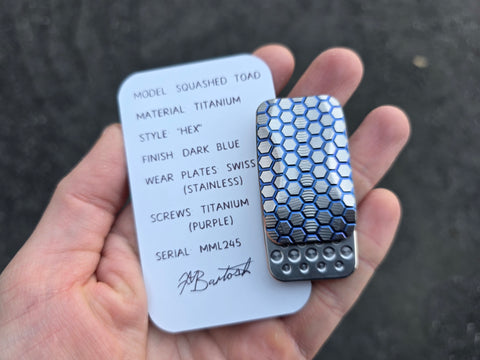 MODEL SQUASHED TOAD
MATERIAL TITANIUM
STYLE "HEX"
FINISH DARK BLUE
WEAR PLATES SWISS
(STAINLESS)
SCREWS TITANIUM
(PURPLE)
SERIAL MML245
Bartosh